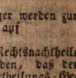 er werden zu
auf
Rechtsnachtheile
den, daß der